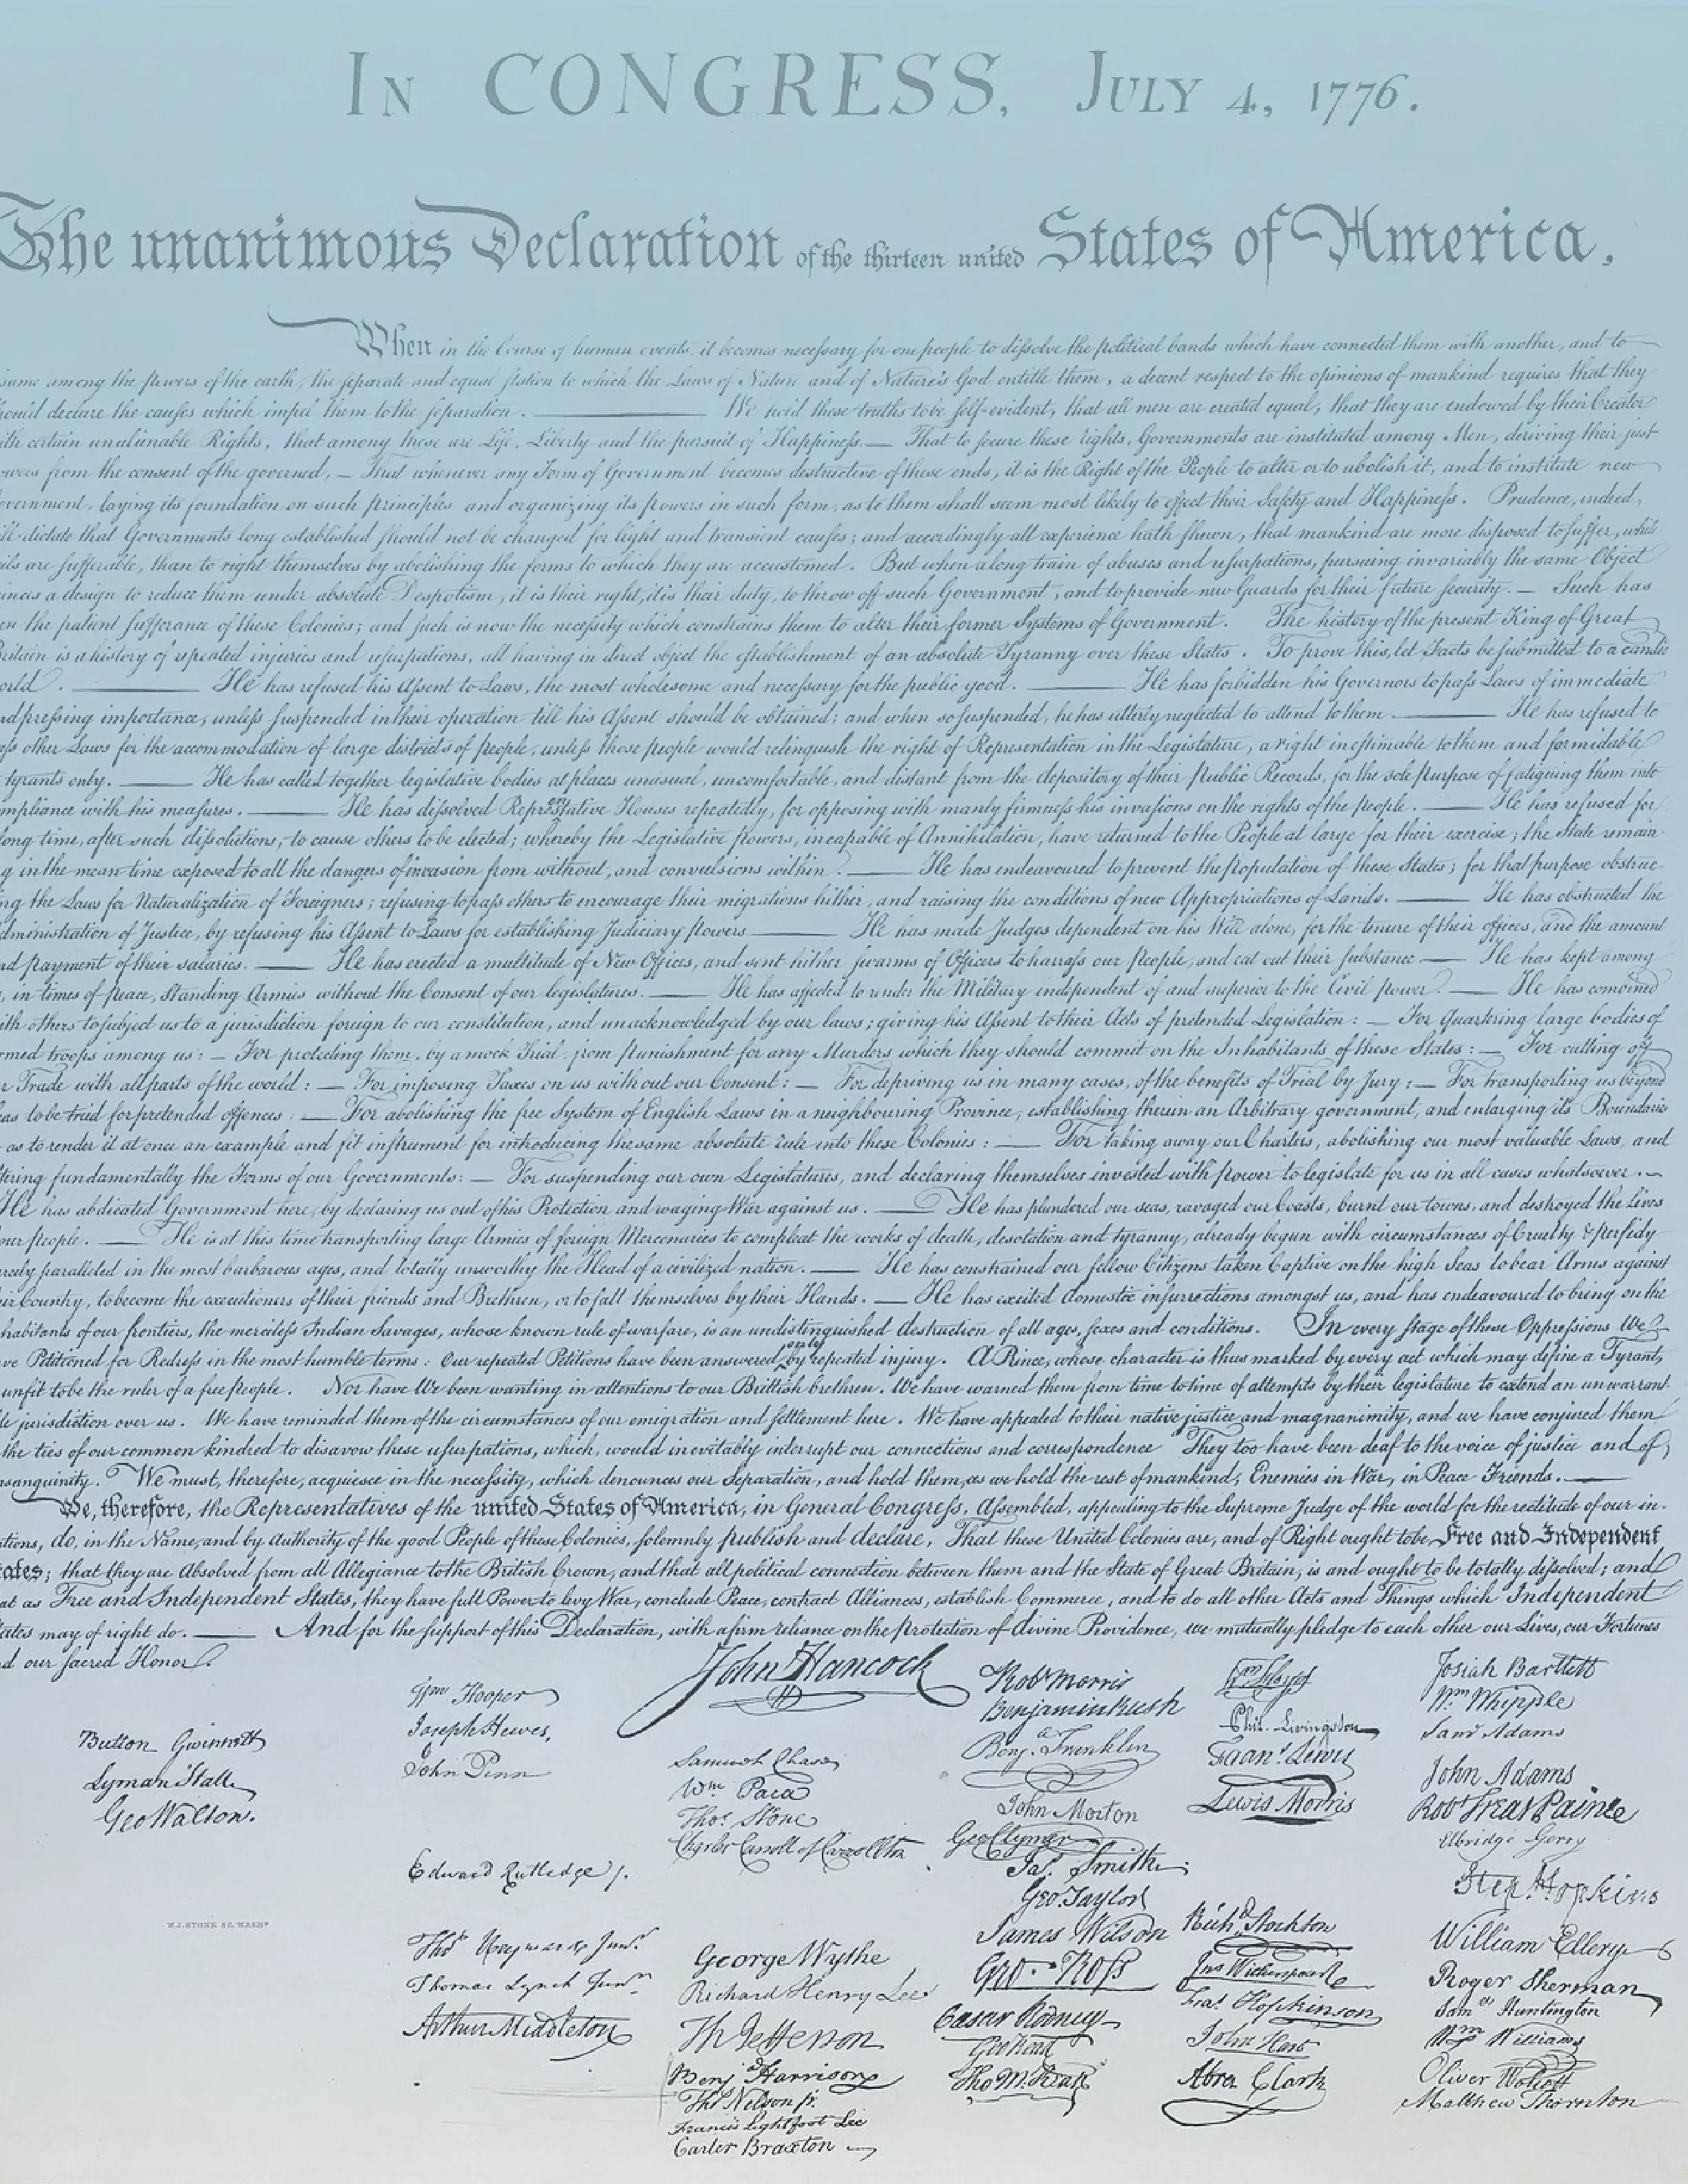 In CONGRESS, July 4, 1776.
The unanimous Declaration of the thirteen united States of America,
When in the Course of human events, it becomes necessary for one people to dissolve the political bands which have connected them with another, and to
sume among the powers of the earth, the separate and equal station to which the Laws of Nature and of Nature's God entitle them, a decent respect to the opinions of mankind requires that they
hould declare the causes which impel them to the separation. ——— We hold these truths to be self-evident, that all men are created equal, that they are endowed by their Creator
ith certain unalienable Rights, that among these are Life, Liberty and the pursuit of Happiness.— That to secure these rights, Governments are instituted among Men, deriving their just
owers from the consent of the governed, — That whenever any Form of Government becomes destructive of these ends, it is the Right of the People to alter or to abolish it, and to institute new
vernment, laying its foundation on such principles and organizing its powers in such form, as to them shall seem most likely to effect their Safety and Happiness. Prudence, indeed,
ill dictate that Governments long established should not be changed for light and transient causes; and accordingly all experience hath shewn, that mankind are more disposed to suffer, while
ils are sufferable, than to right themselves by abolishing the forms to which they are accustomed. But when a long train of abuses and usurpations, pursuing invariably the same Object
inces a design to reduce them under absolute Despotism, it is their right, it is their duty, to throw off such Government, and to provide new Guards for their future security. — Such has
en the patient sufferance of these Colonies; and such is now the necessity which constrains them to alter their former Systems of Government. The history of the present King of Great
Britain is a history of repeated injuries and usurpations, all having in direct object the establishment of an absolute Tyranny over these States. To prove this, let Facts be submitted to a candid
orld. ——— He has refused his Assent to Laws, the most wholesome and necessary for the public good. ——— He has forbidden his Governors to pass Laws of immediate
nd pressing importance, unless suspended in their operation till his Assent should be obtained; and when so suspended, he has utterly neglected to attend to them. ——— He has refused to
ass other Laws for the accommodation of large districts of people, unless those people would relinquish the right of Representation in the Legislature, a right inestimable to them and formidable
tyrants only. ——— He has called together legislative bodies at places unusual, uncomfortable, and distant from the depository of their Public Records, for the sole purpose of fatiguing them into
mpliance with his measures. ——— He has dissolved Representative Houses repeatedly, for opposing with manly firmness his invasions on the rights of the people. ——— He has refused for
long time, after such dissolutions, to cause others to be elected; whereby the Legislative powers, incapable of Annihilation, have returned to the People at large for their exercise; the State remain
g in the mean time exposed to all the dangers of invasion from without, and convulsions within. ——— He has endeavoured to prevent the population of these States; for that purpose obstruc
ng the Laws for Naturalization of Foreigners; refusing to pass others to encourage their migrations hither, and raising the conditions of new Appropriations of Lands. ——— He has obstructed the
dministration of Justice, by refusing his Assent to Laws for establishing Judiciary powers ——— He has made Judges dependent on his Will alone, for the tenure of their offices, and the amount
nd payment of their salaries. ——— He has erected a multitude of New Offices, and sent hither swarms of Officers to harrass our people, and eat out their substance. ——— He has kept among
, in times of peace, Standing Armies without the Consent of our legislatures. ——— He has affected to render the Military independent of and superior to the Civil power. ——— He has combined
ith others to subject us to a jurisdiction foreign to our constitution, and unacknowledged by our laws; giving his Assent to their Acts of pretended Legislation: — For Quartering large bodies of
rmed troops among us: — For protecting them, by a mock Trial, from punishment for any Murders which they should commit on the Inhabitants of these States: — For cutting off
r Trade with all parts of the world: — For imposing Taxes on us without our Consent: — For depriving us in many cases, of the benefits of Trial by Jury: — For transporting us beyond
eas to be tried for pretended offences: — For abolishing the free System of English Laws in a neighbouring Province, establishing therein an Arbitrary government, and enlarging its Boundaries
as to render it at once an example and fit instrument for introducing the same absolute rule into these Colonies: — For taking away our Charters, abolishing our most valuable Laws, and
tering fundamentally the Forms of our Governments: — For suspending our own Legislatures, and declaring themselves invested with power to legislate for us in all cases whatsoever. —
He has abdicated Government here, by declaring us out of his Protection and waging War against us. ——— He has plundered our seas, ravaged our Coasts, burnt our towns, and destroyed the Lives
our people. ——— He is at this time transporting large Armies of foreign Mercenaries to compleat the works of death, desolation and tyranny, already begun with circumstances of Cruelty & perfidy
rcely paralleled in the most barbarous ages, and totally unworthy the Head of a civilized nation. ——— He has constrained our fellow Citizens taken Captive on the high Seas to bear Arms against
eir Country, to become the executioners of their friends and Brethren, or to fall themselves by their Hands. — He has excited domestic insurrections amongst us, and has endeavoured to bring on the
habitants of our frontiers, the merciless Indian Savages, whose known rule of warfare, is an undistinguished destruction of all ages, sexes and conditions. In every stage of these Oppressions We
ve Petitioned for Redress in the most humble terms: Our repeated Petitions have been answered only by repeated injury. A Prince, whose character is thus marked by every act which may define a Tyrant,
unfit to be the ruler of a free people. Nor have We been wanting in attentions to our Brittish brethren. We have warned them from time to time of attempts by their legislature to extend an unwarrant
le jurisdiction over us. We have reminded them of the circumstances of our emigration and settlement here. We have appealed to their native justice and magnanimity, and we have conjured them
the ties of our common kindred to disavow these usurpations, which, would inevitably interrupt our connections and correspondence They too have been deaf to the voice of justice and of
nsanguinity. We must, therefore, acquiesce in the necessity, which denounces our Separation, and hold them, as we hold the rest of mankind, Enemies in War, in Peace Friends. ———
We, therefore, the Representatives of the united States of America, in General Congress, Assembled, appealing to the Supreme Judge of the world for the rectitude of our in-
ntions, do, in the Name, and by Authority of the good People of these Colonies, solemnly publish and declare, That these United Colonies are, and of Right ought to be Free and Independent
ates; that they are Absolved from all Allegiance to the British Crown, and that all political connection between them and the State of Great Britain, is and ought to be totally dissolved; and
at as Free and Independent States, they have full Power to levy War, conclude Peace, contract Alliances, establish Commerce, and to do all other Acts and Things which Independent
tates may of right do. ——— And for the support of this Declaration, with a firm reliance on the protection of divine Providence, we mutually pledge to each other our Lives, our Fortunes
d our sacred Honor.
Button Gwinnett
Lyman Hall
Geo Walton.
W.J. STONE SC. WASHN.
Wm Hooper
Joseph Hewes,
John Penn
Edward Rutledge /.
Thos Heyward Junr.
Thomas Lynch Junr.
Arthur Middleton
John Hancock
Samuel Chase
Wm. Paca
Thos. Stone
Charles Carroll of Carrollton
George Wythe
Richard Henry Lee
Th Jefferson
Benj Harrison
Thos Nelson jr.
Francis Lightfoot Lee
Carter Braxton
Robt Morris
Benjamin Rush
Benja. Franklin
John Morton
Geo Clymer
Jas. Smith.
Geo. Taylor
James Wilson
Geo. Ross
Caesar Rodney
Geo Read
Tho M:Kean
Wm Floyd
Phil. Livingston
Frans. Lewis
Lewis Morris
Richd. Stockton
Jno Witherspoon
Fras. Hopkinson
John Hart
Abra Clark
Josiah Bartlett
Wm Whipple
Saml Adams
John Adams
Robt Treat Paine
Elbridge Gerry
Step. Hopkins
William Ellery
Roger Sherman
Saml Huntington
Wm Williams
Oliver Wolcott
Matthew Thornton